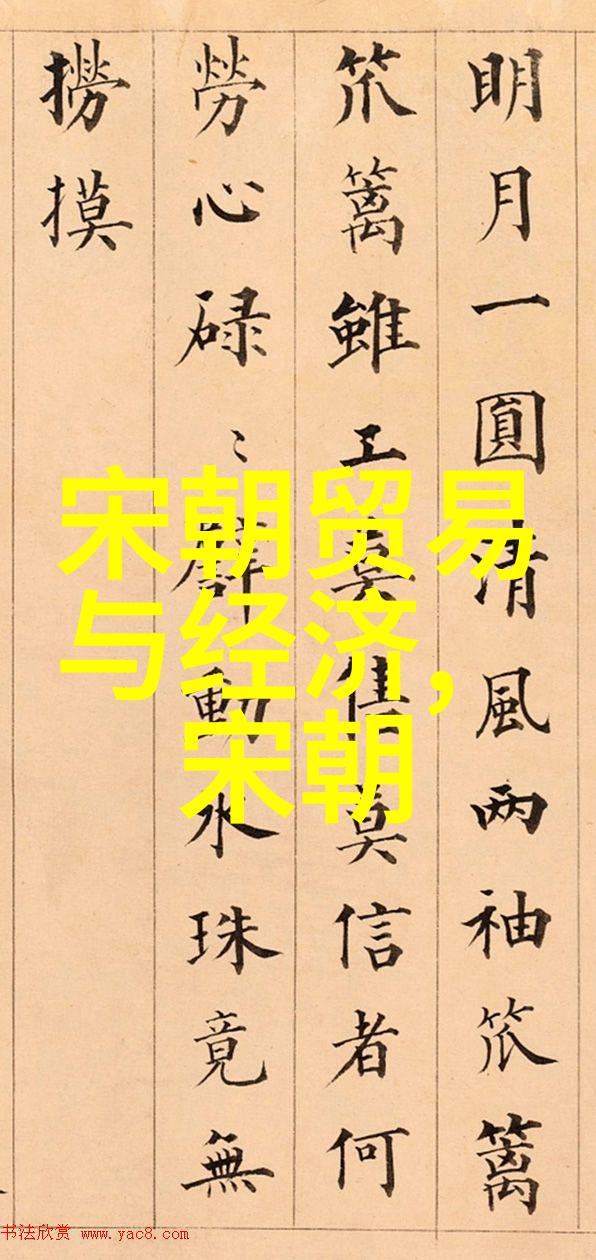 明月一圓清風两袖笊篱
笊篱雖工莫莫信者何
勞心碌〻動水珠竟無
撈摸
宋朝贸易
与经济,
宋朝
书法欣赏 www.yac8.com